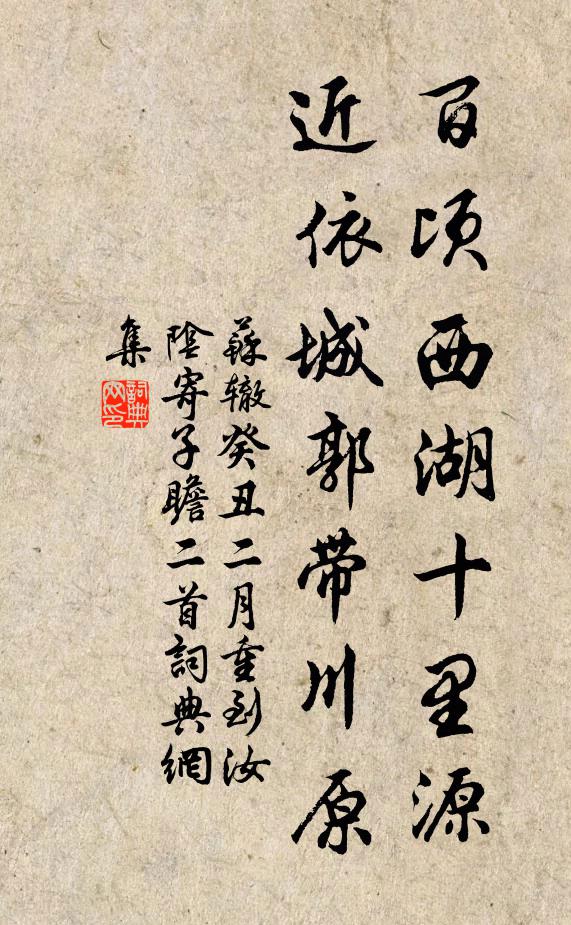 百頃西湖十里源
近依城郭带川原
蘇辙癸丑二月重到汝
陰寄子瞻二首詞典網
集
詞典
网印